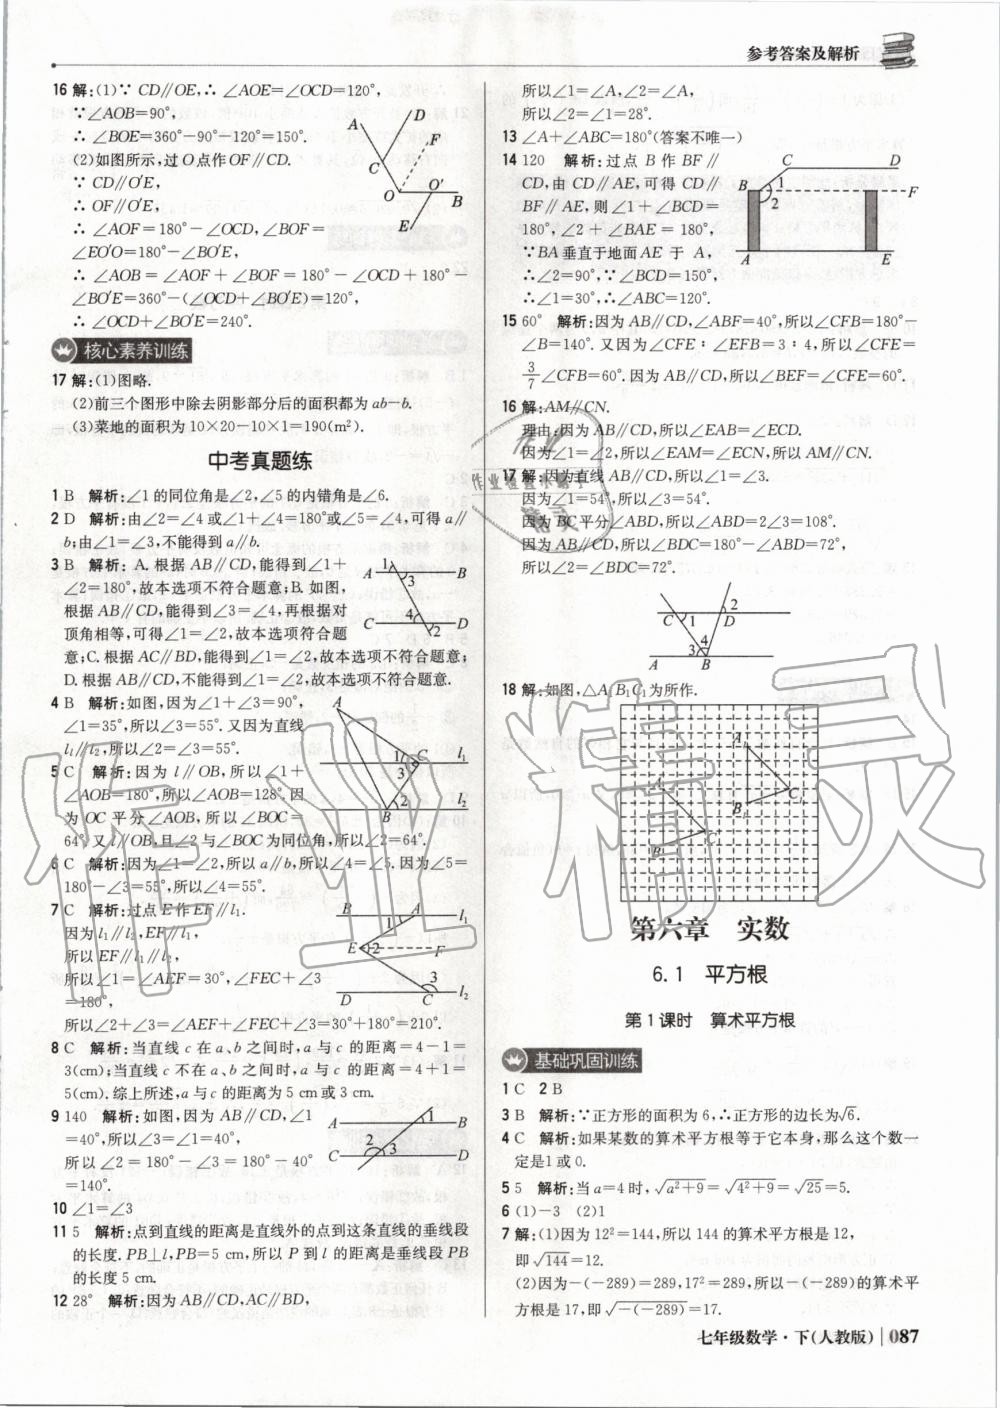 参考答案及解析
16 解:(1)∵ CD∥OE,∴ ∠AOE=∠OCD=120°,
∵∠AOB=90°,
∴ ∠BOE=360°-90°-120°=150°.
(2)如图所示,过O点作OF∥CD.
∵ CD∥O′E,
∴ OF∥O′E,
∴ ∠AOF=180°-∠OCD,∠BOF=
∠EO′O=180°-∠BO′E,
∴ ∠AOB=∠AOF+∠BOF=180°-∠OCD+180°-
∠BO′E=360°-(∠OCD+∠BO′E)=120°,
∴ ∠OCD+∠BO′E=240°.
A D F C O O′ B E
核心素养训练
17 解:(1)图略.
(2)前三个图形中除去阴影部分后的面积都为ab-b.
(3)菜地的面积为10×20-10×1=190(m²).
中考真题练
1 B 解析:∠1的同位角是∠2,∠5的内错角是∠6.
2 D 解析:由∠2=∠4或∠1+∠4=180°或∠5=∠4,可得a∥
b;由∠1=∠3,不能得到a∥b.
3 B 解析:A.根据AB∥CD,能得到∠1+
∠2=180°,故本选项不符合题意;B.如图,
根据AB∥CD,能得到∠3=∠4,再根据对
顶角相等,可得∠1=∠2,故本选项符合题
意;C.根据AC∥BD,能得到∠1=∠2,故本选项不符合题意;
D.根据AB∥CD,不能得到∠1=∠2,故本选项不符合题意.
A 1 3 B C 4 2 D
4 B 解析:如图,因为∠1+∠3=90°,
∠1=35°,所以∠3=55°.又因为直线
l₁∥l₂,所以∠2=∠3=55°.
A 1 C l₁ 3 2 l₂ B
5 C 解析:因为l∥OB,所以∠1+
∠AOB=180°,所以∠AOB=128°.因
为OC平分∠AOB,所以∠BOC=
64°.又l∥OB,且∠2与∠BOC为同位角,所以∠2=64°.
6 C 解析:因为∠1=∠2,所以a∥b,所以∠4=∠5.因为∠5=
180°-∠3=55°,所以∠4=55°.
7 C 解析:过点E作EF∥l₁.
因为l₁∥l₂,EF∥l₁,
所以EF∥l₁∥l₂,
所以∠1=∠AEF=30°,∠FEC+∠3
=180°,
所以∠2+∠3=∠AEF+∠FEC+∠3=30°+180°=210°.
B A 1 l₁ E 2 F 3 D C l₂
8 C 解析:当直线c在a、b之间时,a与c的距离=4-1=
3(cm);当直线c不在a、b之间时,a与c的距离=4+1=
5(cm).综上所述,a与c的距离为5 cm或3 cm.
9 140 解析:如图,因为AB∥CD,∠1
=40°,所以∠3=∠1=40°,
所以∠2=180°-∠3=180°-40°
=140°.
A 1 B 2 3 C D
10 ∠1=∠3
11 5 解析:点到直线的距离是直线外的点到这条直线的垂线段
的长度.PB⊥l,PB=5 cm,所以P到l的距离是垂线段PB
的长度5 cm.
12 28° 解析:因为AB∥CD,AC∥BD,
所以∠1=∠A,∠2=∠A,
所以∠2=∠1=28°.
13 ∠A+∠ABC=180°(答案不唯一)
14 120 解析:过点B作BF∥
CD,由CD∥AE,可得CD∥
BF∥AE,则∠1+∠BCD=
180°,∠2+∠BAE=180°,
∵BA垂直于地面AE于A,
∴∠2=90°,∵∠BCD=150°,
∴∠1=30°,∴∠ABC=120°.
C D B 1 2 F A E
15 60° 解析:因为AB∥CD,∠ABF=40°,所以∠CFB=180°-
∠B=140°.又因为∠CFE∶∠EFB=3∶4,所以∠CFE=
3/7∠CFB=60°.因为AB∥CD,所以∠BEF=∠CFE=60°.
16 解:AM∥CN.
理由:因为AB∥CD,所以∠EAB=∠ECD.
因为∠1=∠2,所以∠EAM=∠ECN,所以AM∥CN.
17 解:因为直线AB∥CD,所以∠1=∠3.
因为∠1=54°,所以∠3=54°.
因为BC平分∠ABD,所以∠ABD=2∠3=108°.
因为AB∥CD,所以∠BDC=180°-∠ABD=72°,
所以∠2=∠BDC=72°.
2 C 1 D 4 3 A B
18 解:如图,△A₁B₁C₁为所作.
A₁ B₁ C₁ A B C
第六章 实数
6.1 平方根
第1课时 算术平方根
基础巩固训练
1 C 2 B
3 B 解析:∵正方形的面积为6,∴正方形的边长为√6.
4 C 解析:如果某数的算术平方根等于它本身,那么这个数一
定是1或0.
5 5 解析:当a=4时,√(a²+9)=√(4²+9)=√25=5.
6 (1)-3 (2)1
7 解:(1)因为12²=144,所以144的算术平方根是12,
即√144=12.
(2)因为-(-289)=289,17²=289,所以-(-289)的算术平
方根是17,即√(-(-289))=17.
七年级数学·下(人教版) 087
作业精灵